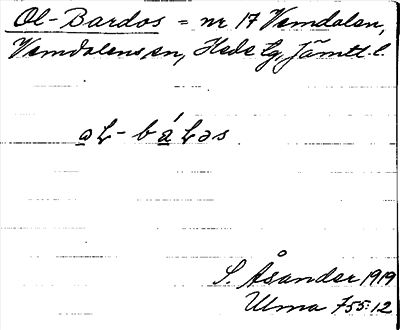 Ol-Bardos = nr 17 Vemdalen,
Vemdalens sn, Heds tg, Jämtl. l.
oƚ-báƚəs
S. Åsander 1919
Ulma 755:12